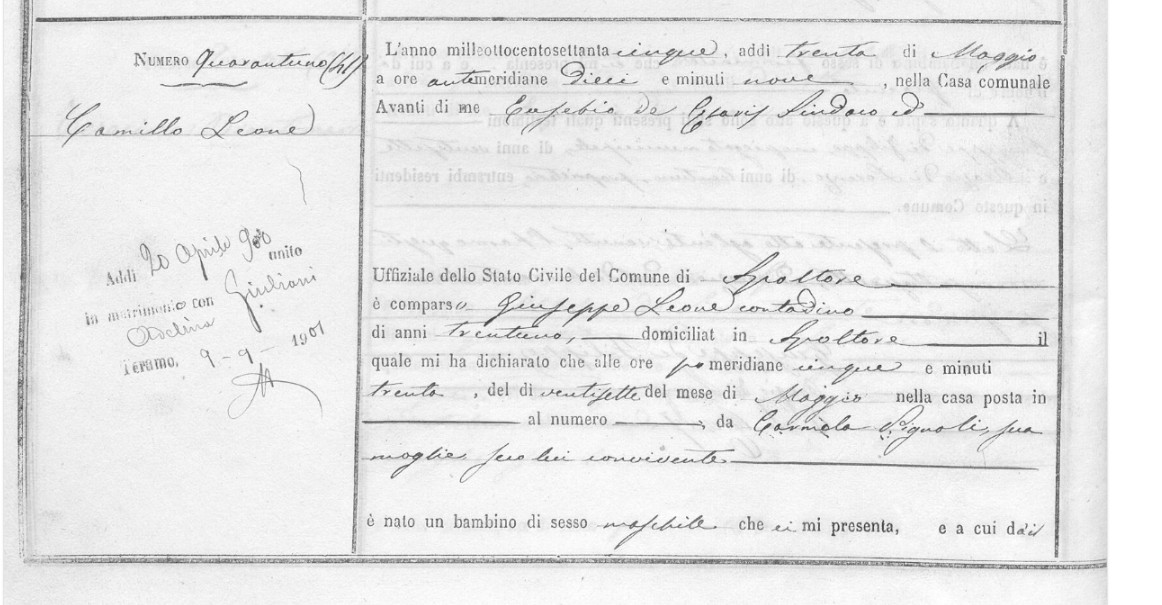 Numero Quarantuno (41)
Camillo Leone
Addi 20 Aprile 900 unito
in matrimonio con Giuliani
Adelina
Teramo, 9-9-1901
L'anno milleottocentosettanta cinque, addi trenta di Maggio
a ore antemeridiane dieci e minuti nove, nella Casa comunale
Avanti di me Eusebio de Sindaco ed
Uffiziale dello Stato Civile del Comune di Spoltore
è compars Giuseppe Leone contadino
di anni trentuno, domiciliat in Spoltore il
quale mi ha dichiarato che alle ore pomeridiane cinque e minuti
trenta, del di ventisette del mese di Maggio nella casa posta in
al numero , da Carmela sua
moglie seco lui convivente
è nato un bambino di sesso maschile che ei mi presenta, e a cui dà il